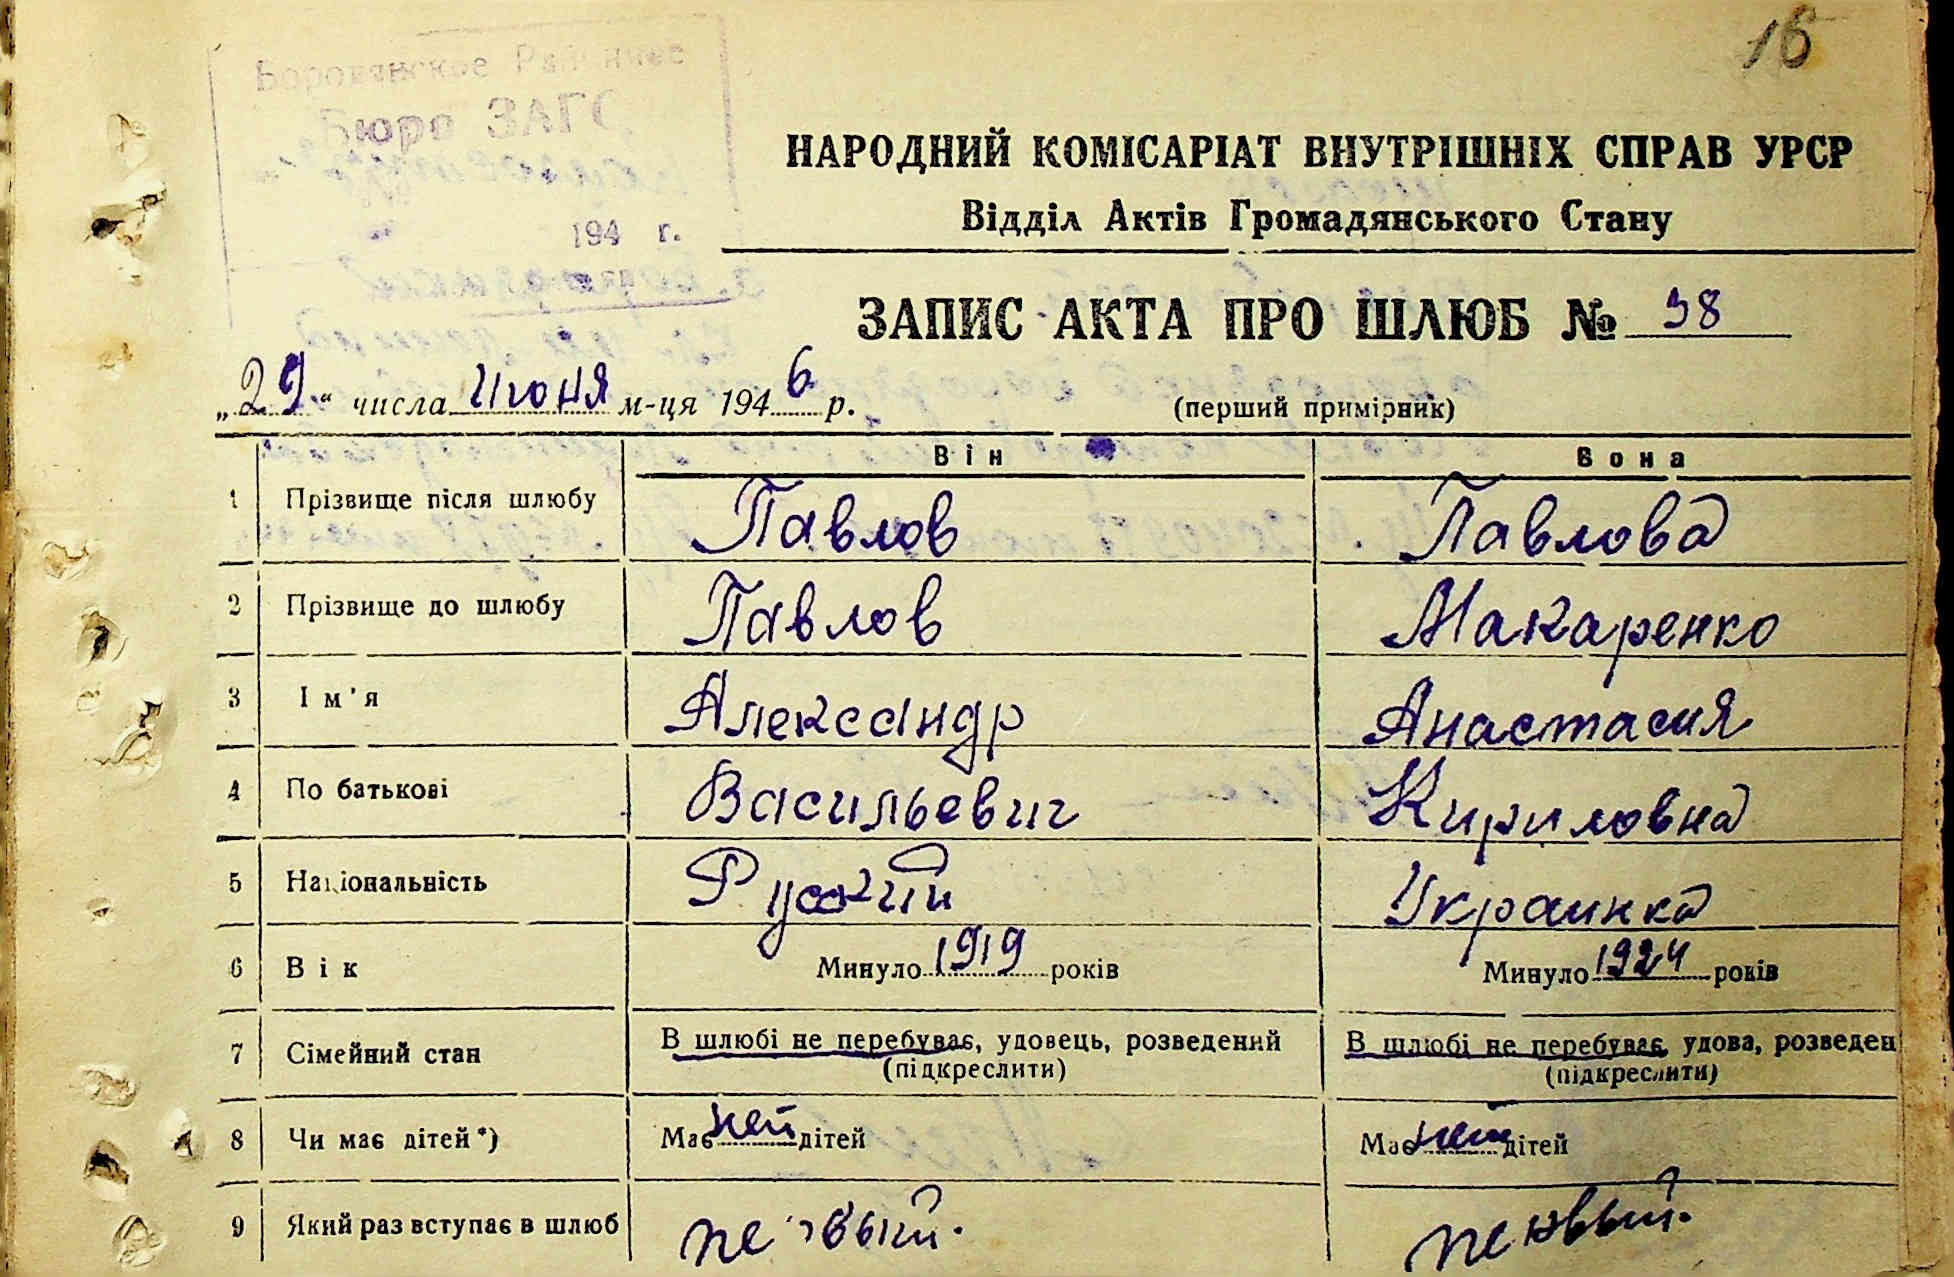 16
Боровянское Районное
Бюро ЗАГС
194 г.
НАРОДНИЙ КОМІСАРІАТ ВНУТРІШНІХ СПРАВ УРСР
Відділ Актів Громадянського Стану
ЗАПИС АКТА ПРО ШЛЮБ № 38
„29“ числа Июня м-ця 1946 р.
(перший примірник)
Він Вона
1 Прізвище після шлюбу Павлов Павлова
2 Прізвище до шлюбу Павлов Макаренко
3 Ім'я Александр Анастасия
4 По батькові Васильевич Кириловна
5 Національність Руский Украинка
6 Вік Минуло 1919 років Минуло 1924 років
7 Сімейний стан В шлюбі не перебуває, удовець, розведений В шлюбі не перебуває, удова, розведен
(підкреслити) (підкреслити)
8 Чи має дітей*) Має нет дітей Має нет дітей
9 Який раз вступає в шлюб первый. первый.